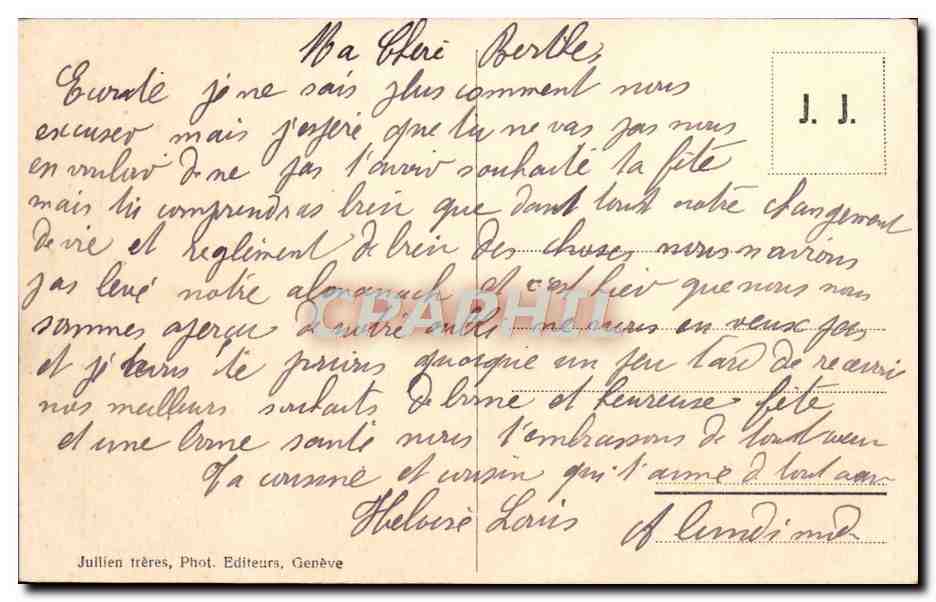 Ma Cheri Berthe,
Ecoute je ne sais plus comment nous
J. J.
excuser mais j'espère que tu ne vas pas nous
en vouloir de ne pas t'avoir souhaité ta fête
mais tu comprendras bien que dant tout notre changement
de vie et reglement de bien des choses nous navions
pas levé notre almanach et c'est hier que nous nous
sommes aperçu de notre oubli ne nous en veux pas
et je te prions quoique un peu tard de recevoir
nos meilleurs souhaits de bonne et heureuse fête
et une bonne santé nous t'embrassons de tout cœur
Ta cousine et cousin qui t'aime de tout cœur
Heloise Louis
A lundi
Jullien frères, Phot. Editeurs, Genève
CPAPHIL